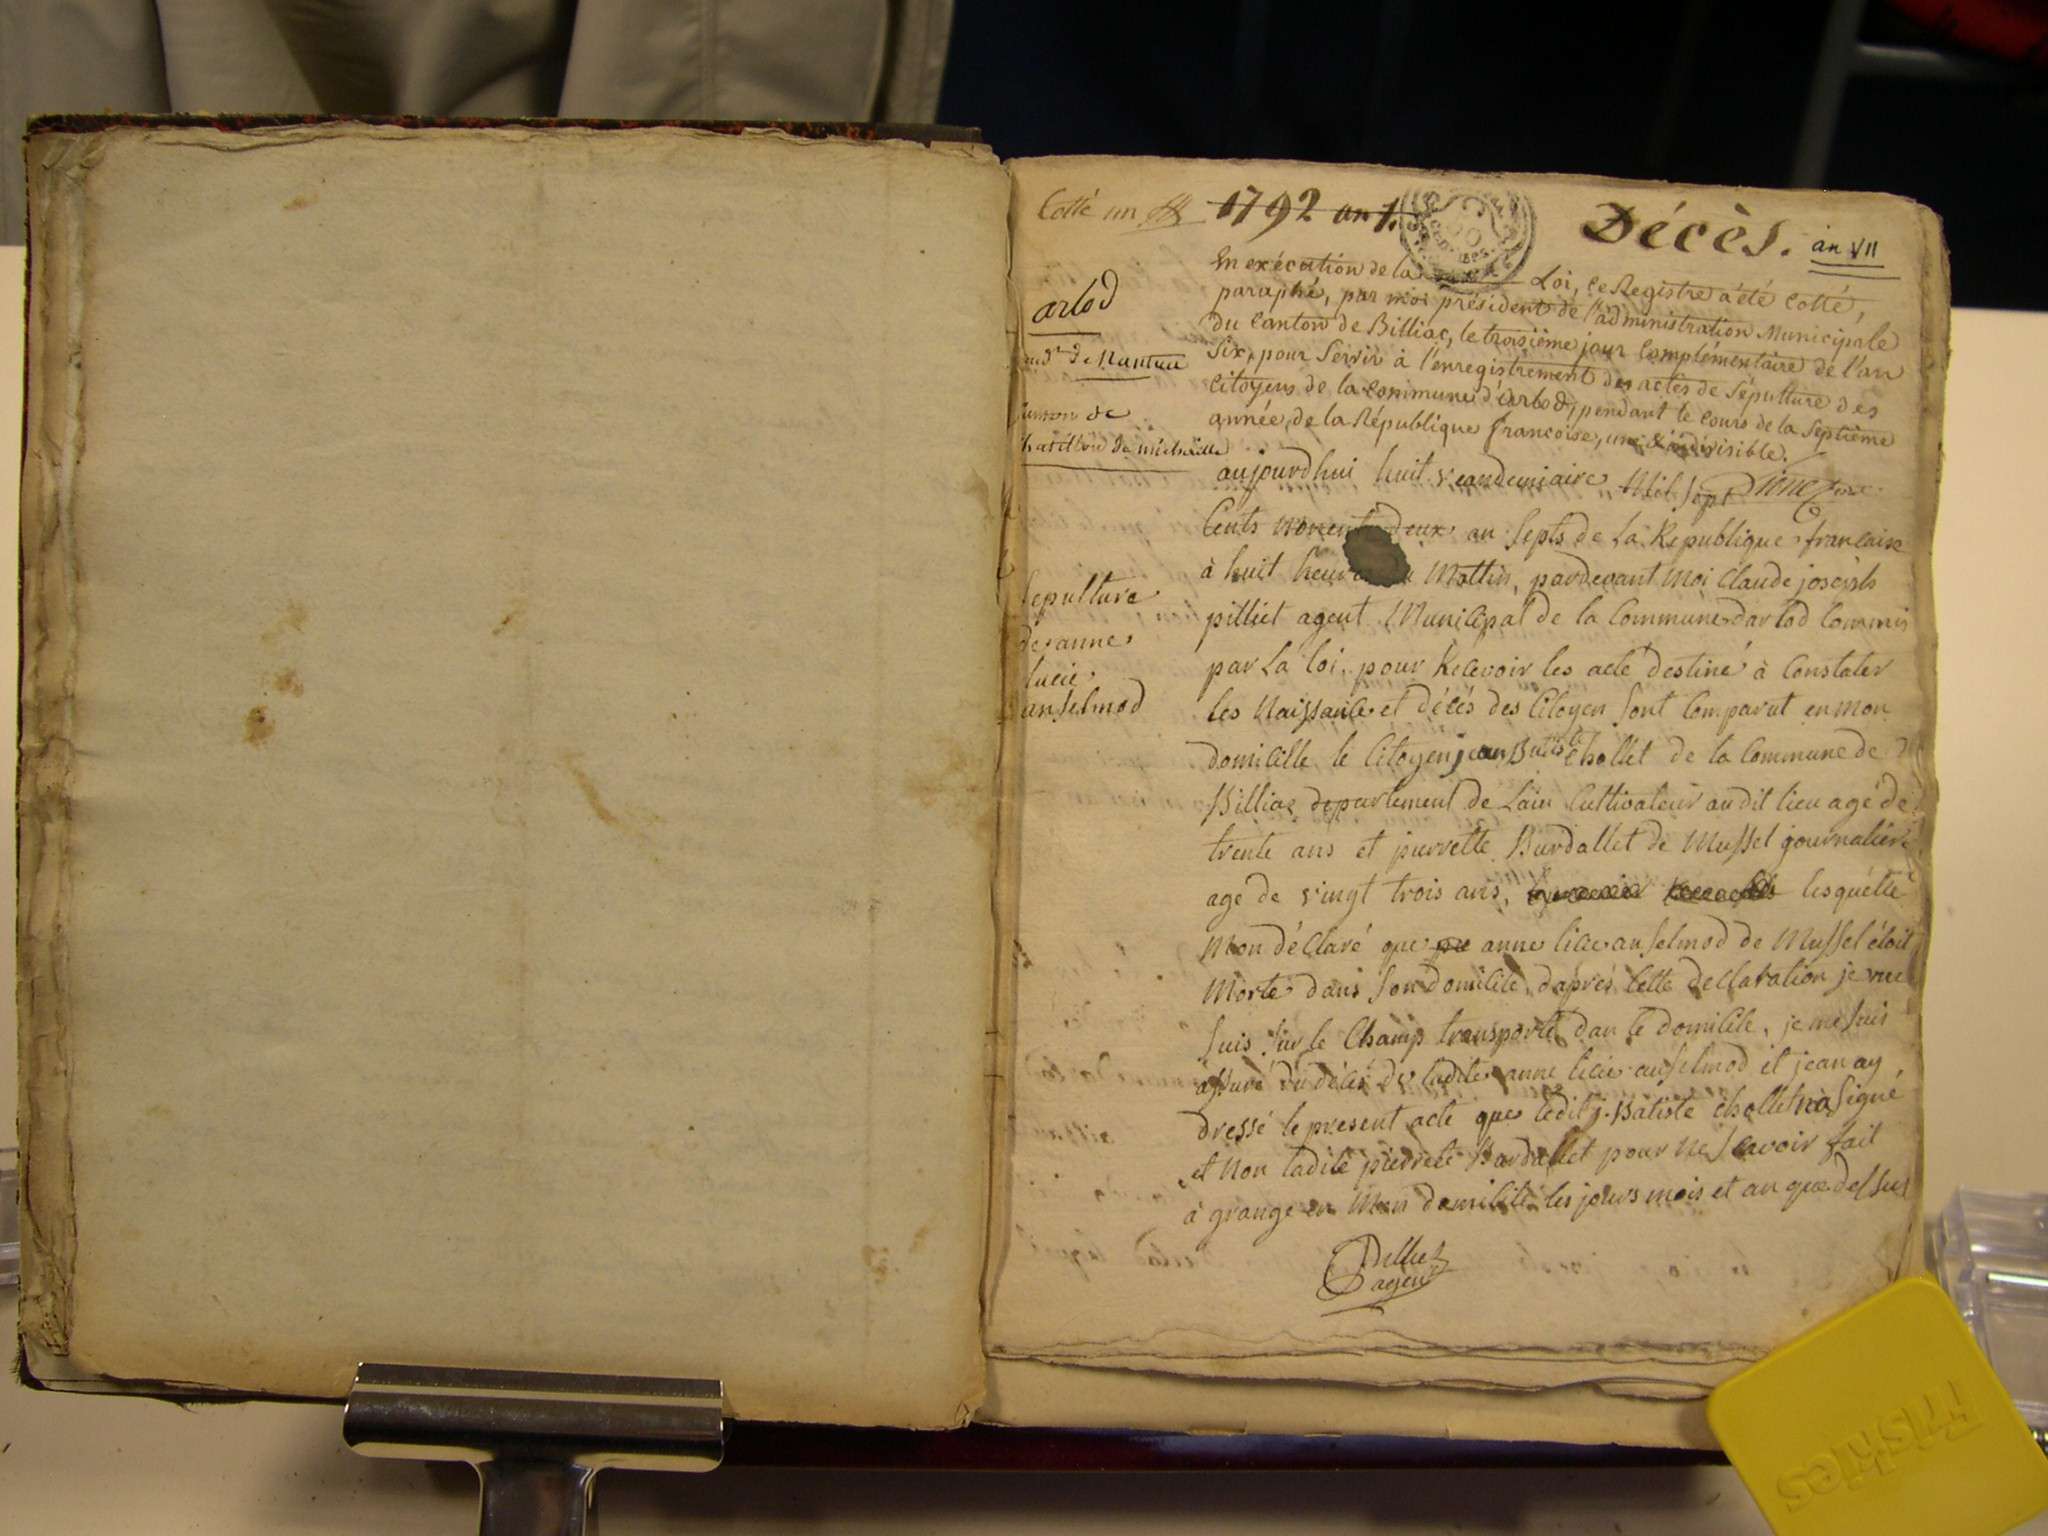 Cotté un
1792 an 1.
Décès. an VII
arlod
de Nantua
canton de
chatillon de michaille
En exécution de la Loi, ce Registre a été cotté,
paraphé, par moi président de l'administration Municipale
du Canton de Billiac, le troisième jour Complémentaire de l'an
Six, pour Servir à l'enregistrement des actes de Sépulture des
Citoyens de la commune d'arlod, pendant le cours de la Septième
année, de la République francoise, une & indivisible.
Sepulture
de anne
lucie
anselmod
aujourdhui huit vandemiaire Mil Sept
Cents Nonente deux an Septs de La Republique francaise
à huit heure Mattin, pardevant Moi Claude josephs
pilliet agent Municipal de la Commune darlod Commis
par La loi, pour Recevoir les acte destiné à Constater
les Naissance et Décés des Citoyen Sont Comparut en mon
domicille le Citoyen jean Batiste chollet de la Commune de
Billiac departement de Lain Cultivateur audit lieu agé de
trente ans et pierrette Burdallet de Mussel journaliere
age de vingt trois ans, lesquélle
Mon déClaré que anne licie anselmod de Mussel étoit
Morte dans Son domicile, daprés Cette declaration je me
Suis Sur le Champ transporté dan le domicile, je me Suis
assuré du décés de ladite anne licie anselmod et jean ay
dressé le present acte que ledit j. Batiste chollet na Signé
et Non ladite pierrete Bardallet pour ne Scavoir fait
à grange en Mon domicile les jours mois et an que dessus
Pilliet
agent
Friskies